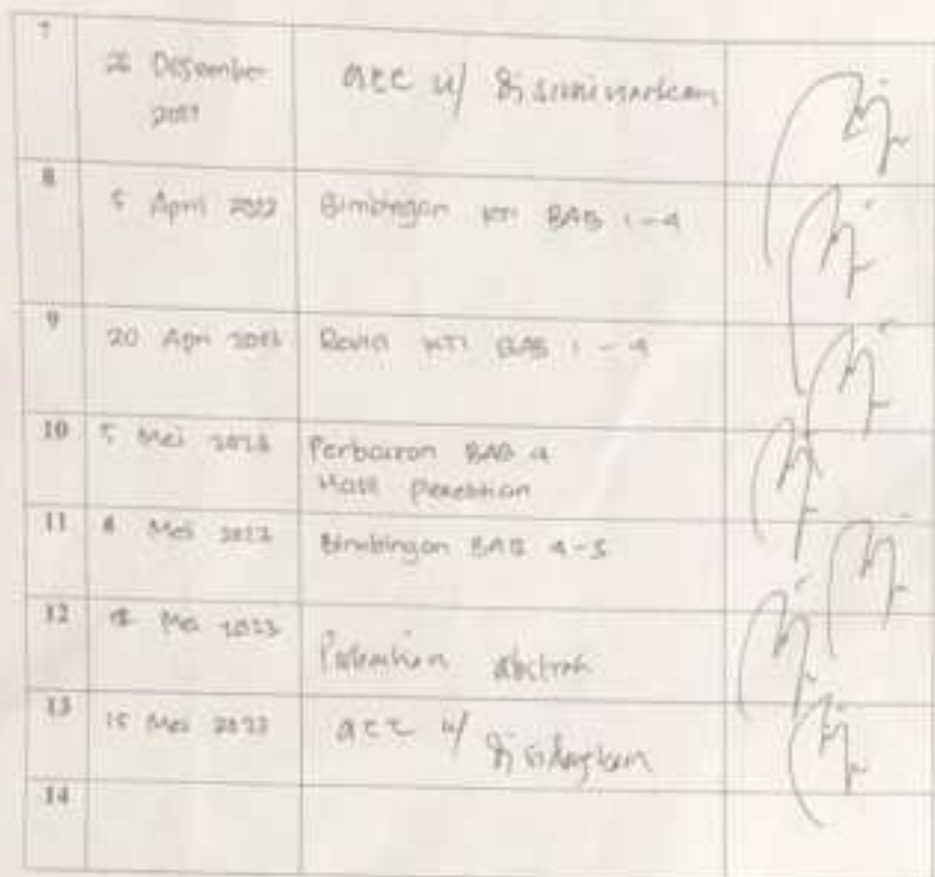 7
26 Desember
acc u/ diseminarkan
8
5 April 2023
Bimbingan KTI BAB 1-4
9
20 Apri 2023
Revisi KTI BAB 1-4
10
5 Mei 2023
Perbaikan BAB 4
Hasil Penelitian
11
8 Mei 2023
Bimbingan BAB 4-5
12
Mei 2023
Perbaikan abstrak
13
15 Mei 2023
acc u/ disidangkan
14